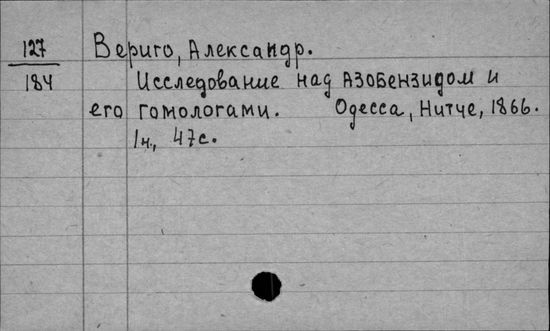 127
184
Вериго, Александр.
Исследование над азобензидом и
его гомологами. Одесса, Нитче, 1866.
1н., 47с.